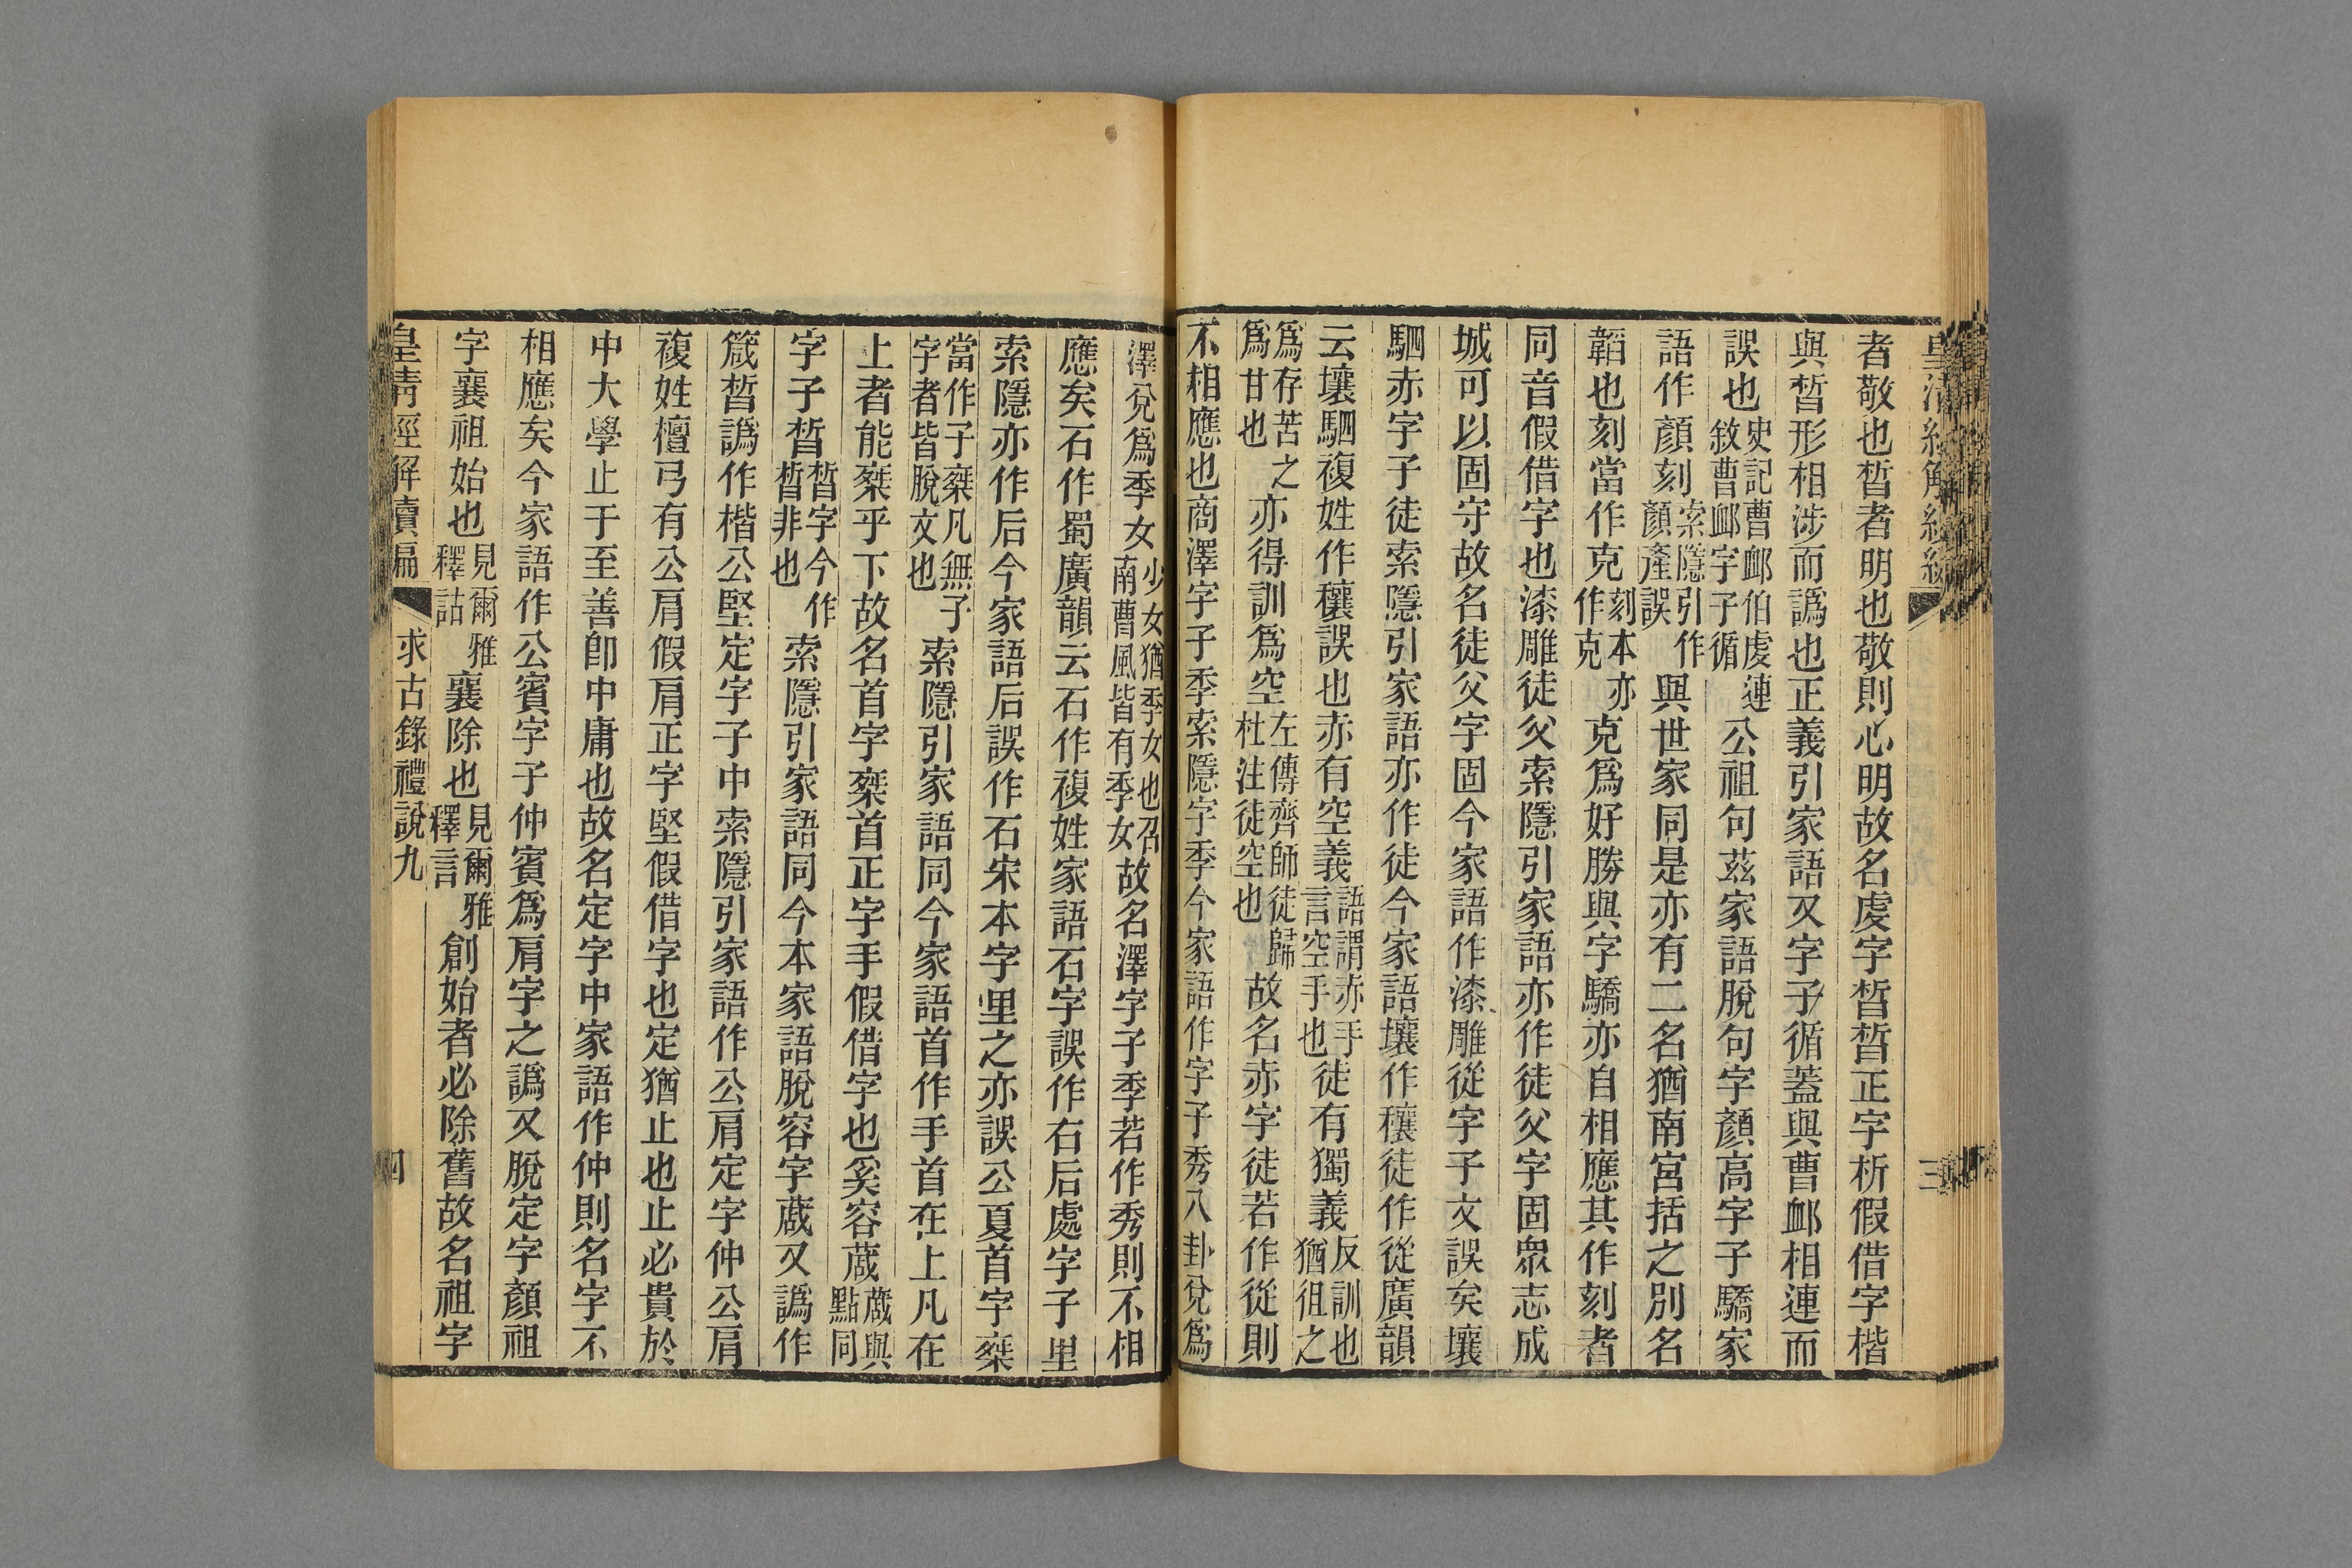 者敬也晳者明也敬則心明故名虔字晳晳正字析假借字楷
與晳形相涉而譌也正義引家語又字子循蓋與曹卹相連而
誤也史記曹卹伯虔連敘曹卹字子循公祖句茲家語脫句字顏高字子驕家
語作顏刻索隱引作顏產誤與世家同是亦有二名猶南宮括之別名
韜也刻當作克刻本亦作克克爲好勝與字驕亦自相應其作刻者
同音假借字也漆雕徒父索隱引家語亦作徒父字固眾志成
城可以固守故名徒父字固今家語作漆雕從字子文誤矣壤
駟赤字子徒索隱引家語亦作徒今家語壤作穰徒作從廣韻
云壤駟複姓作穰誤也赤有空義語謂赤手言空手也徒有獨義反訓也猶徂之
爲存苦之爲甘也亦得訓爲空左傳齊師徒歸杜注徒空也故名赤字徒若作從則
不相應也商澤字子季索隱字季今家語作字子秀八卦兌爲
澤兌爲季女少女猶季女也召南曹風皆有季女故名澤字子季若作秀則不相
應矣石作蜀廣韻云石作複姓家語石字誤作右后處字子里
索隱亦作后今家語后誤作石宋本字里之亦誤公夏首字椉
當作子椉凡無子字者皆脫文也索隱引家語同今家語首作手首在上凡在
上者能椉乎下故名首字椉首正字手假借字也奚容蒧蒧與點同
字子晳晳字今作晢非也索隱引家語同今本家語脫容字蒧又譌作
箴晳譌作楷公堅定字子中索隱引家語作公肩定字仲公肩
複姓檀弓有公肩假肩正字堅假借字也定猶止也止必貴於
中大學止于至善卽中庸也故名定字中家語作仲則名字不
相應矣今家語作公賓字子仲賓爲肩字之譌又脫定字顏祖
字襄祖始也見爾雅釋詁襄除也見爾雅釋言創始者必除舊故名祖字
皇淸經解續編
求古錄禮說九
四